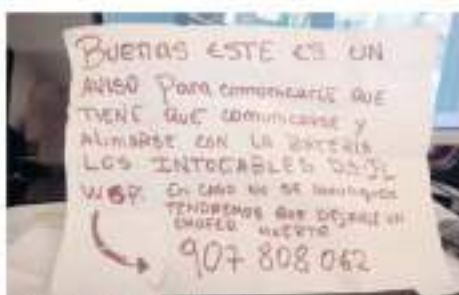 BUENAS ESTE ES UN
AVISO Para comunicarle QUE
TIENE QUE comunicarse y
ALINARSE CON LA BATERIA
LOS INTOCABLES DSJL
WSP. En caso no se comunique
TENDREMOS QUE DEJARLE UN
CHOFER MUERTO
907 808 062